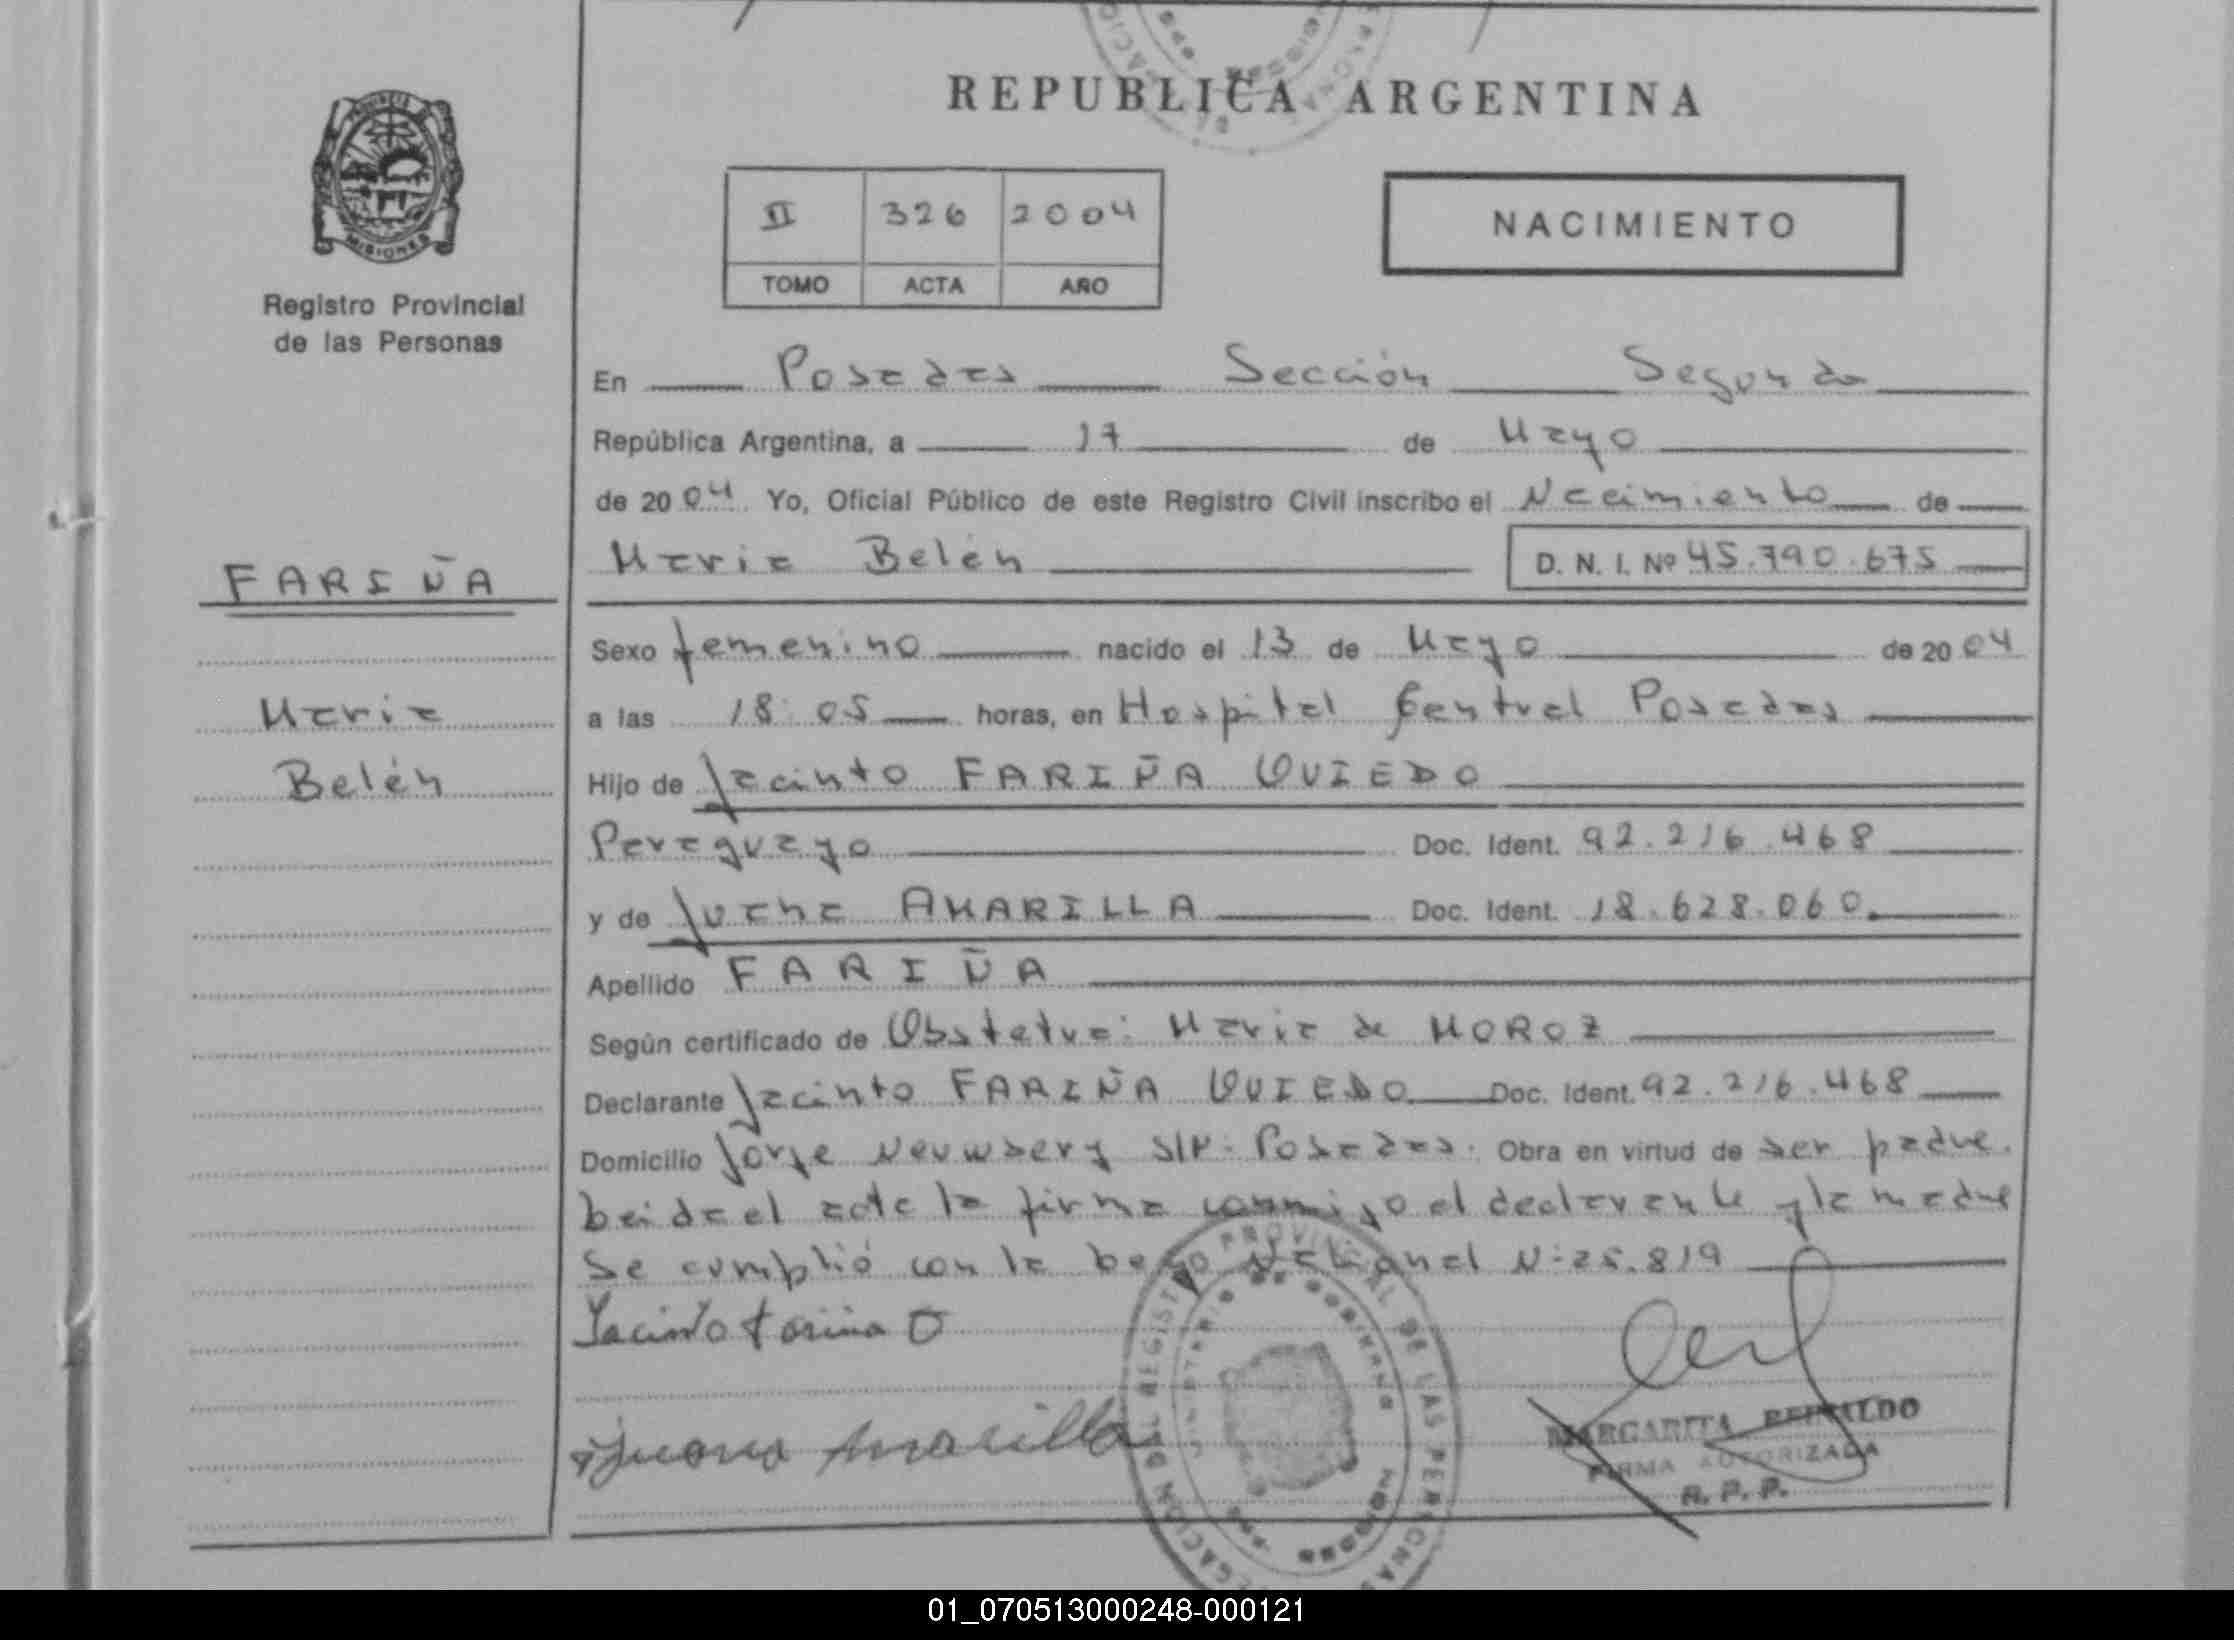 REPUBLICA ARGENTINA
PROVINCIA DE
MISIONES
Registro Provincial
de las Personas
II 326 2004
TOMO ACTA AÑO
NACIMIENTO
En Posadas Sección Segunda
República Argentina, a 17 de Mayo
de 2004. Yo, Oficial Público de este Registro Civil inscribo el Nacimiento de
María Belén D. N. I. Nº 45.790.675
FARIÑA
María
Belén
Sexo femenino nacido el 13 de Mayo de 2004
a las 18:05 horas, en Hospital Central Posadas
Hijo de Jacinto FARIÑA OVIEDO
Paraguayo Doc. Ident. 92.216.468
y de Juana AMARILLA Doc. Ident. 18.628.060.
Apellido FARIÑA
Según certificado de Obstetra: María de MOROZ
Declarante Jacinto FARIÑA OVIEDO Doc. Ident. 92.216.468
Domicilio Jorje Neuwbery S/N- Posadas. Obra en virtud de ser padre.
Leida el acta la firma conmigo el declarante y la madre
Se cumplió con la Ley Nacional N: 25.819
Jacinto Fariña O
Juana Amarilla
REGISTRO PROVINCIAL DE LAS PERSONAS
MINISTERIO DE GOBIERNO
MISIONES
MARGARITA REINALDO
FIRMA AUTORIZADA
R. P. P.
01_070513000248-000121